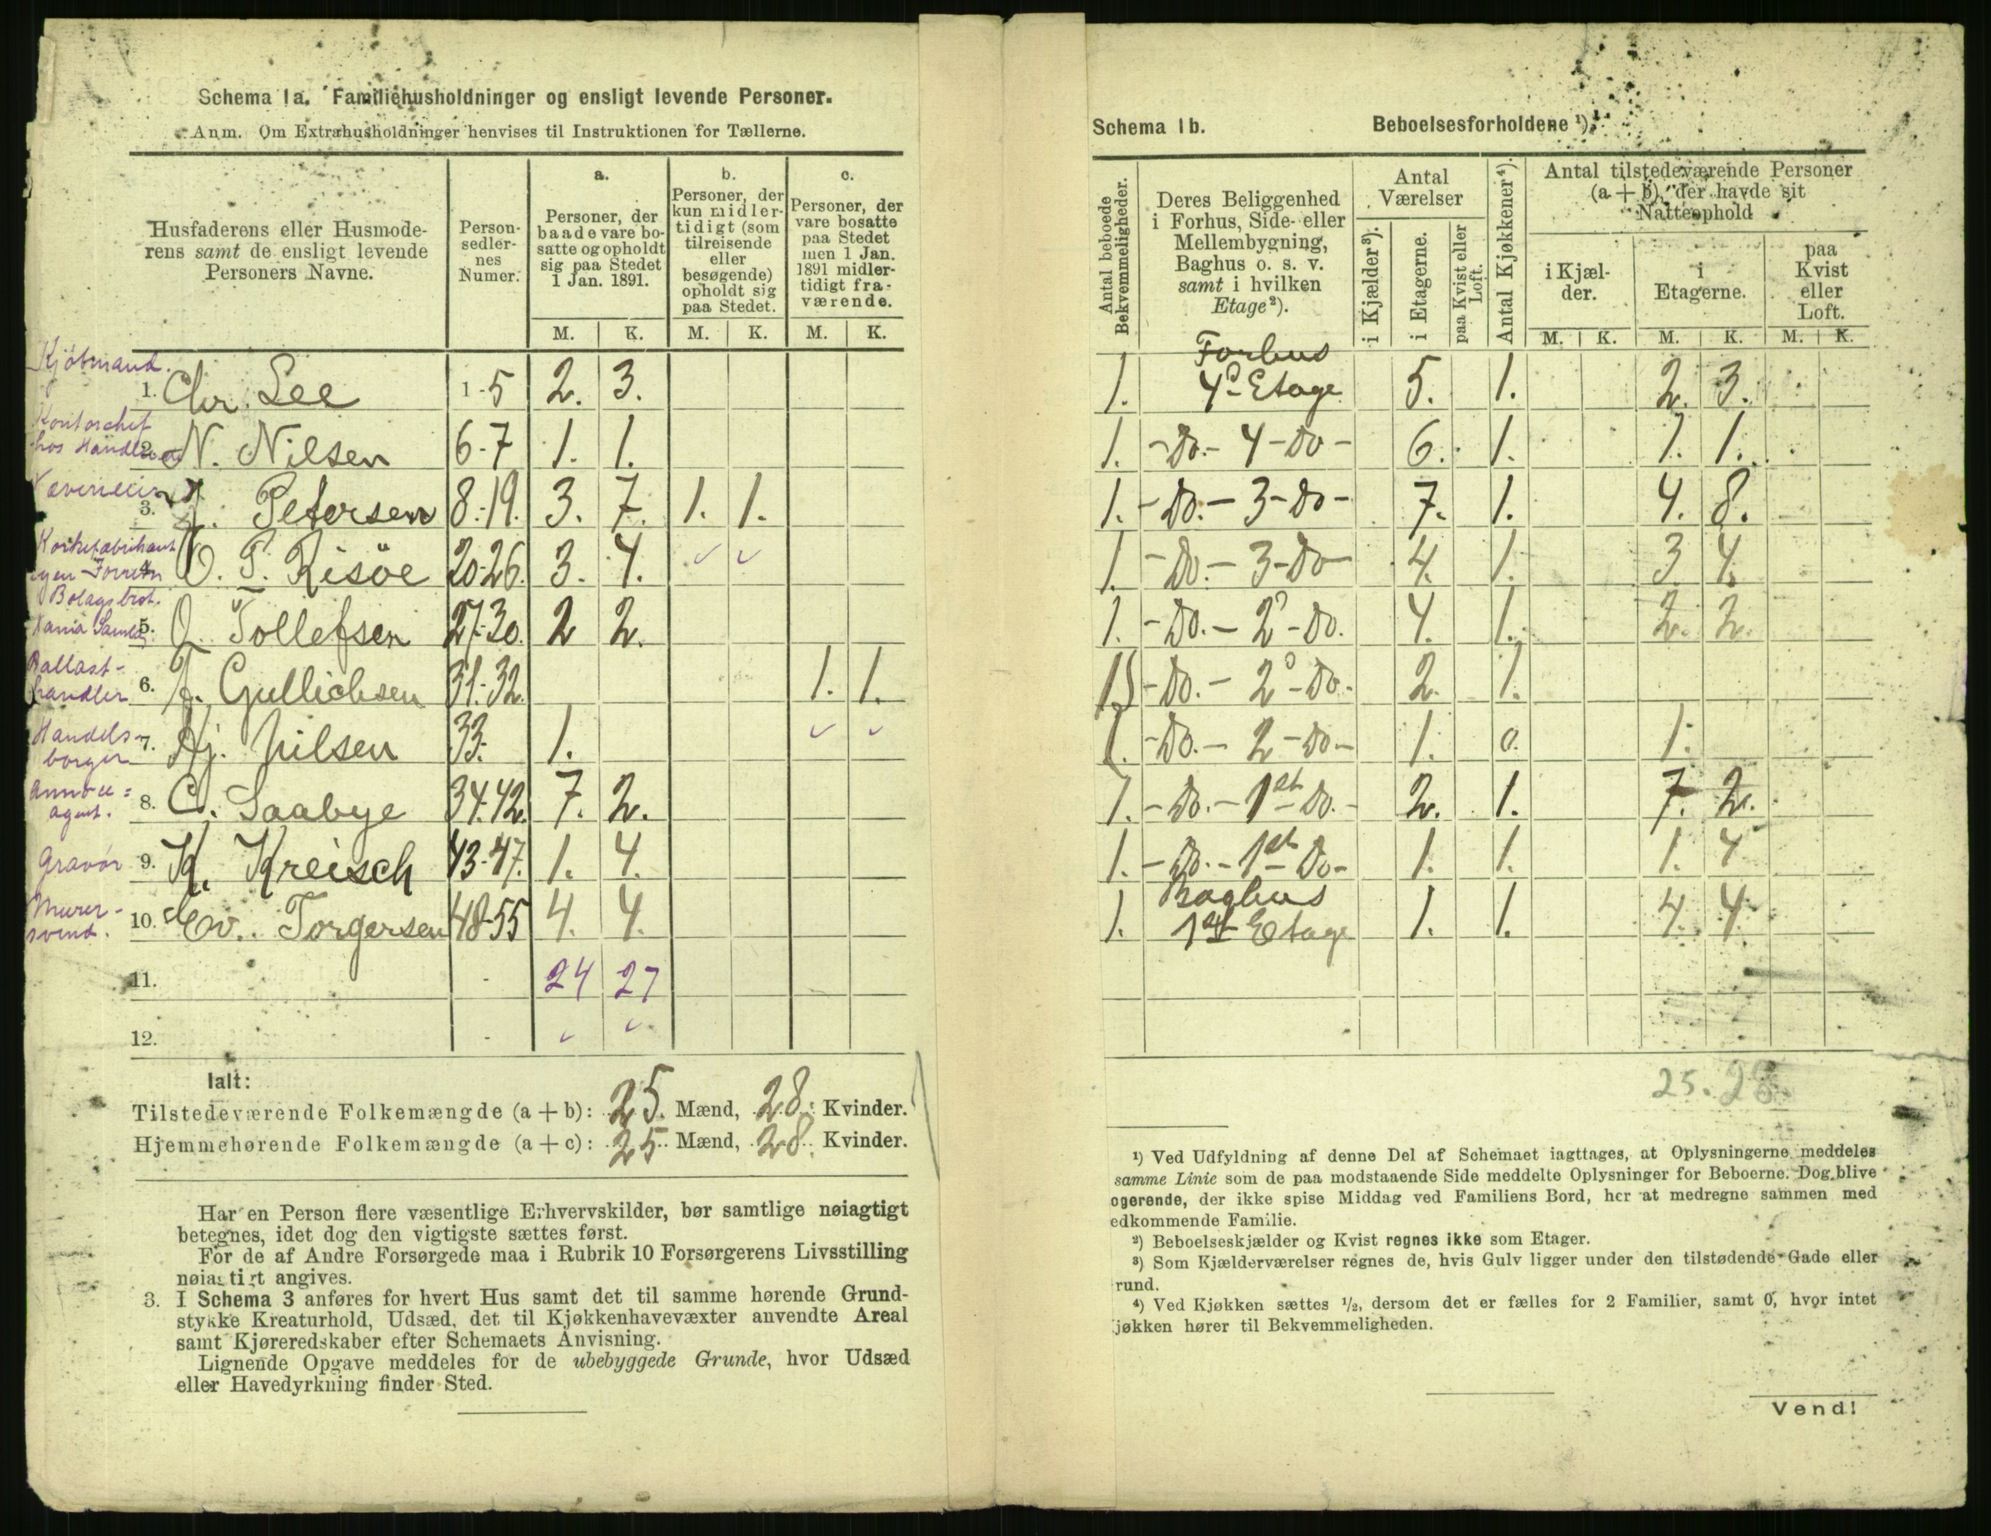 Schema 1a. Familiehusholdninger og ensligt levende Personer.
Anm. Om Extrahusholdninger henvises til Instruktionen for Tællerne.
Husfaderens eller Husmode-
rens samt de ensligt levende
Personers Navne.
Person-
sedler-
nes
Numer.
a.
Personer, der
baade vare bo-
satte og opholdt
sig paa Stedet
1 Jan. 1891.
b.
Personer, der
kun midler-
tidigt (som
tilreisende
eller
besøgende)
opholdt sig
paa Stedet.
c.
Personer, der
vare bosatte
paa Stedet
men 1 Jan.
1891 midler-
tidigt fra-
værende.
M. K. M. K. M. K.
Kjöbmand.
1. Chr. Lee 1-5 2. 3.
Kontorchef
hos Handler
2. N. Nilsen 6-7 1. 1.
3. J. Petersen 8-19. 3. 7. 1. 1.
Korkefabrikant
egen Forretn
4. O. T. Risöe 20-26. 3. 4.
Bolagsbest.
5. O. Tollefsen 27-30. 2 2.
Ballast-
handler
6. F. Gullichsen 31-32. 1. 1.
Handels-
borger
7. Hj. Nilsen 33. 1.
Annonce=
agent.
8. C. Saabye 34-42. 7. 2.
Gravör
9. K. Kreisch 43-47. 1. 4.
Murer-
svend.
10. Ev. Torgersen 48-55 4. 4.
11. 24 27
12.
Ialt:
Tilstedeværende Folkemængde (a + b): 25. Mænd, 28. Kvinder.
Hjemmehørende Folkemængde (a + c): 25. Mænd, 28. Kvinder.
Har en Person flere væsentlige Erhvervskilder, bør samtlige nøiagtigt
betegnes, idet dog den vigtigste sættes først.
For de af Andre Forsørgede maa i Rubrik 10 Forsørgerens Livsstilling
nøiagtigt angives.
3. I Schema 3 anføres for hvert Hus samt det til samme hørende Grund-
stykke Kreaturhold, Udsæd, det til Kjøkkenhavevæxter anvendte Areal
samt Kjøreredskaber efter Schemaets Anvisning.
Lignende Opgave meddeles for de ubebyggede Grunde, hvor Udsæd
eller Havedyrkning finder Sted.
Schema 1b. Beboelsesforholdene ¹).
Antal beboede
Bekvemmeligheder.
Deres Beliggenhed
i Forhus, Side- eller
Mellembygning,
Baghus o. s. v.
samt i hvilken
Etage²).
Antal
Værelser
i Kjælder³).
i Etagerne.
paa Kvist eller
Loft.
Antal Kjøkkener⁴).
Antal tilstedeværende Personer
(a + b), der havde sit
Natteophold
i Kjæl-
der.
i
Etagerne.
paa
Kvist
eller
Loft.
M. K. M. K. M. K.
Forhus
1. 4de Etage 5. 1. 2. 3.
1. -Do.- 4 -Do- 6. 1. 1. 1.
1. -Do.- 3 -Do- 7. 1. 4. 8.
1. -Do.- 3 -Do- 4. 1. 3. 4.
1. -Do.- 2 -Do. 4. 1. 2. 2.
1 -Do.- 2 -Do. 2. 1.
1. -Do.- 2 -Do- 1. 0. 1.
1. -Do.- 1st Do.- 2. 1. 7. 2.
1. -Do.- 1st Do- 1. 1. 1. 4
Baghus
1. 1st Etage 1. 1. 4. 4.
25. 28.
¹) Ved Udfyldning af denne Del af Schemaet iagttages, at Oplysningerne meddeles
samme Linie som de paa modstaaende Side meddelte Oplysninger for Beboerne. Dog blive
ogerende, der ikke spise Middag ved Familiens Bord, her at medregne sammen med
edkommende Familie.
²) Beboelseskjælder og Kvist regnes ikke som Etager.
³) Som Kjælderværelser regnes de, hvis Gulv ligger under den tilstødende Gade eller
rund.
⁴) Ved Kjøkken sættes ¹/₂, dersom det er fælles for 2 Familier, samt 0, hvor intet
jøkken hører til Bekvemmeligheden.
Vend!